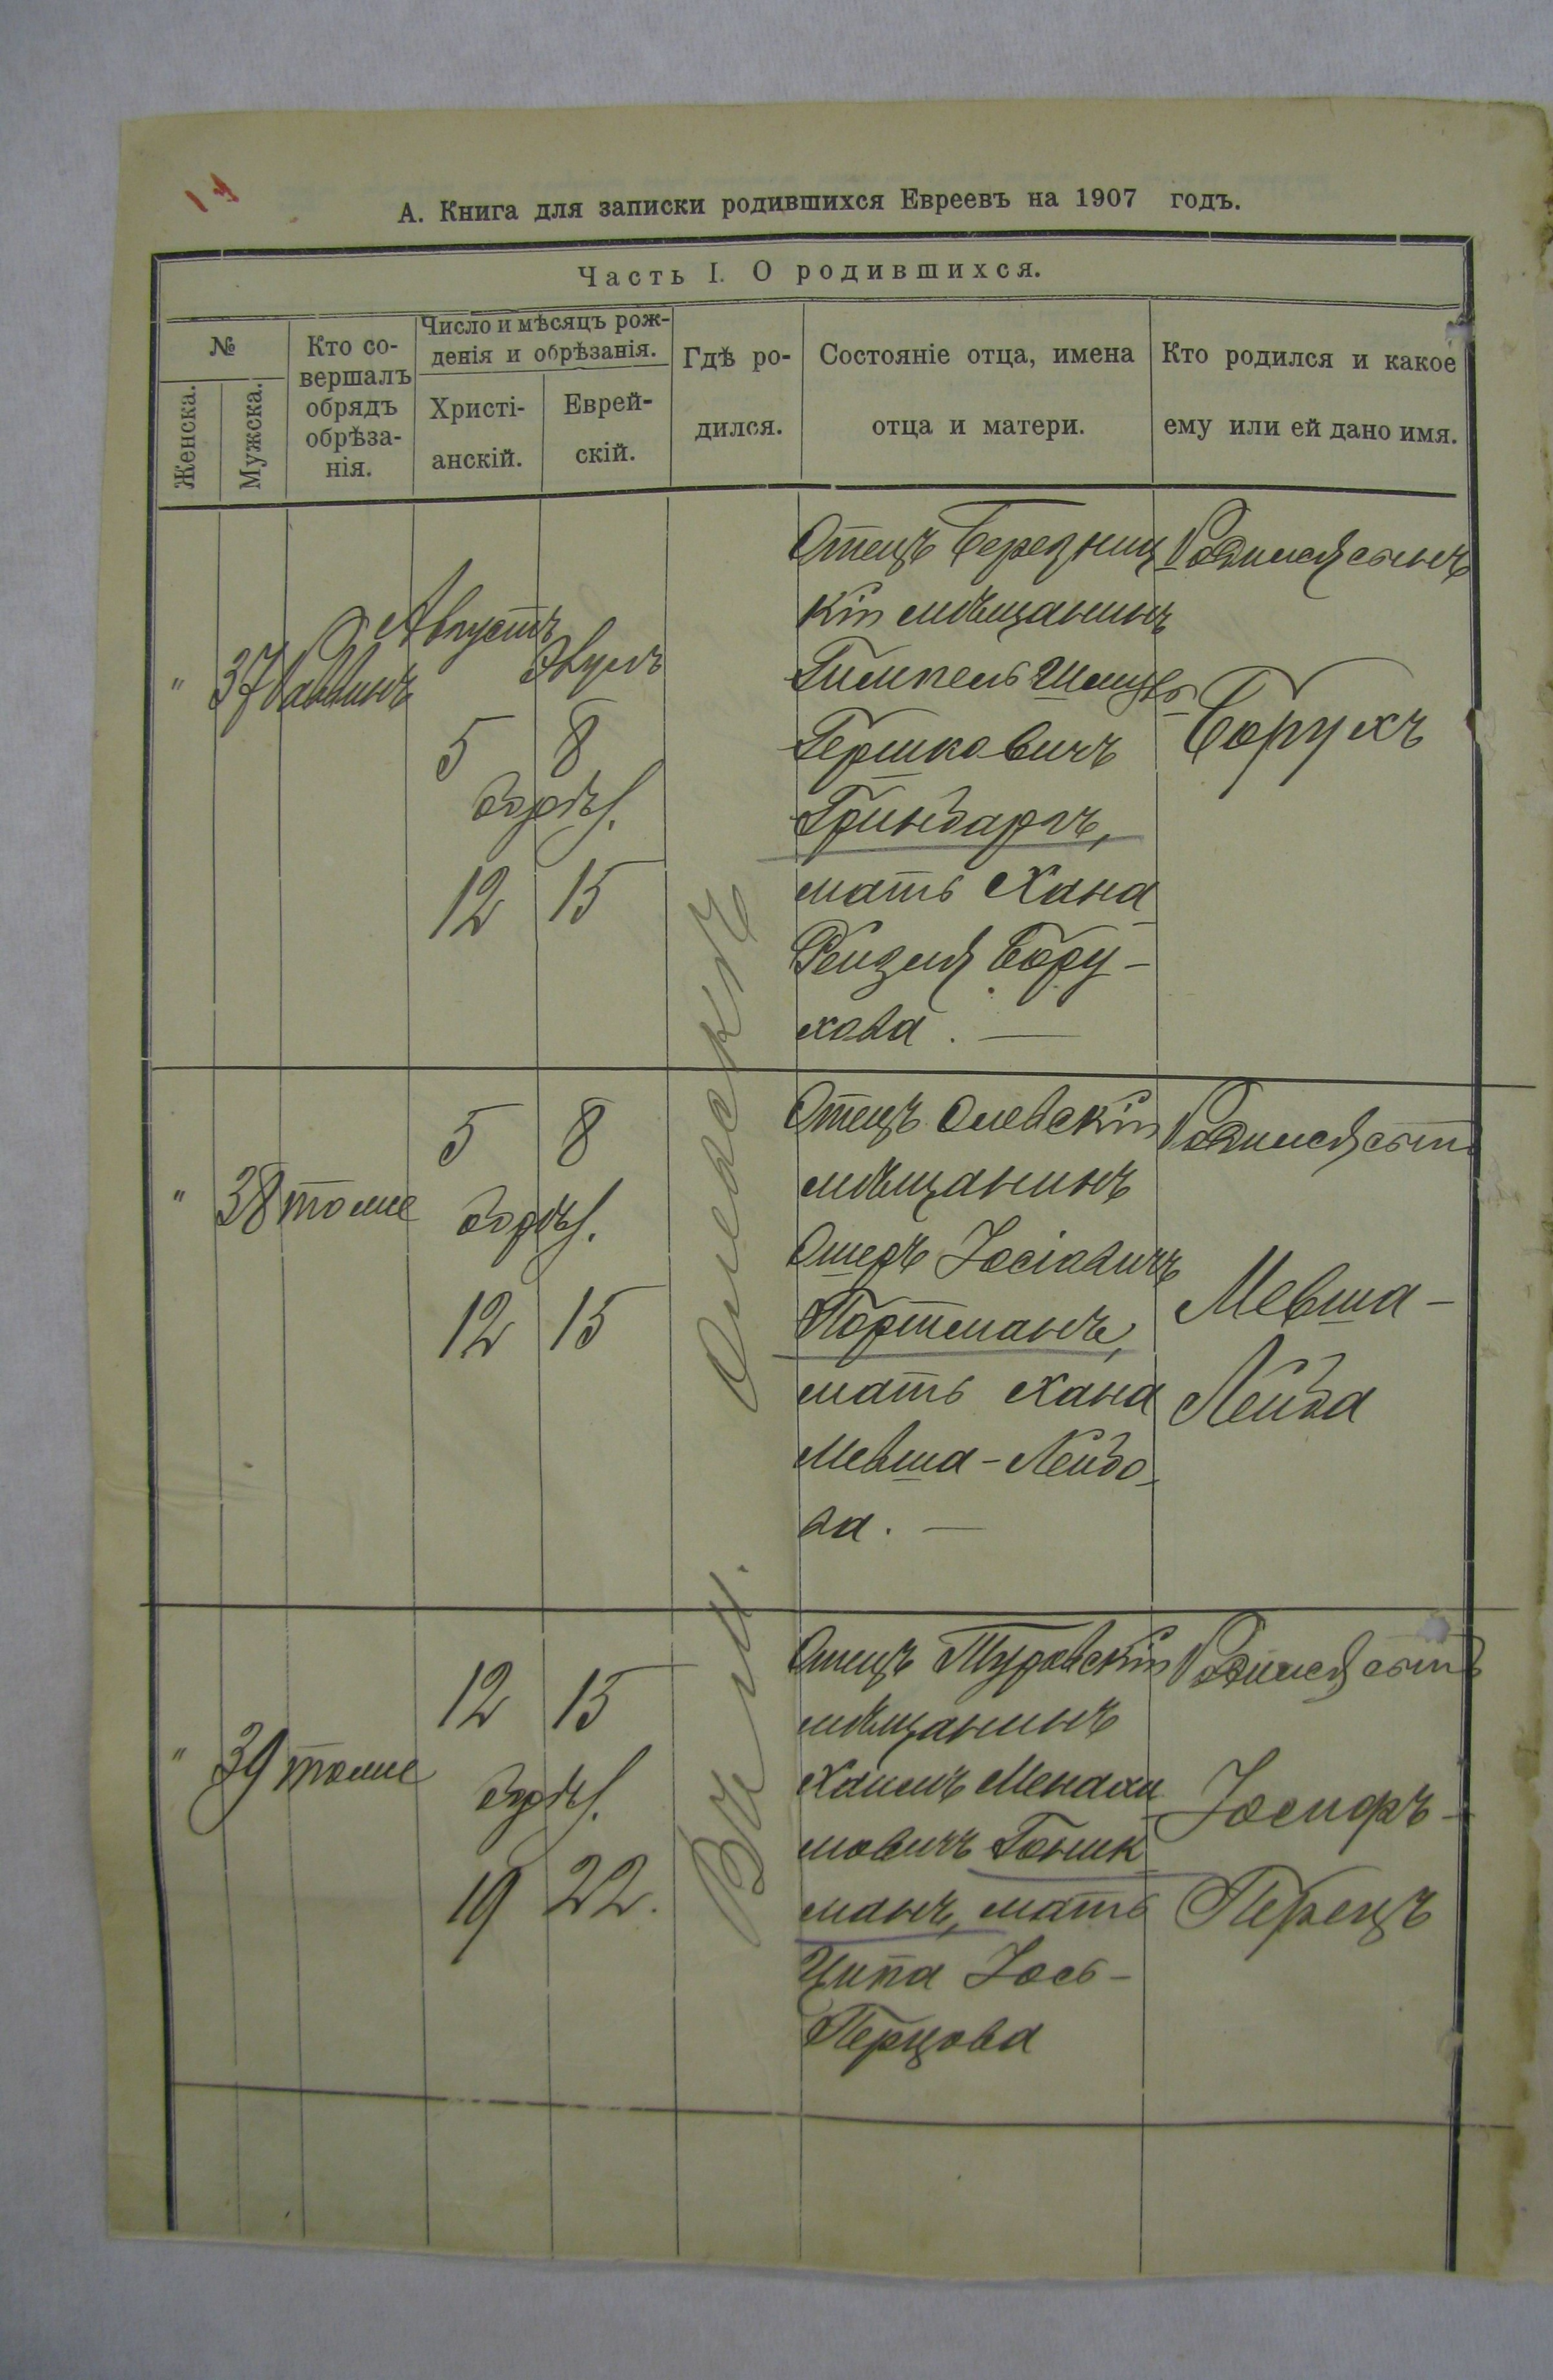 14
А. Книга для записки родившихся Евреевъ на 1907 годъ.
Часть I. О родившихся.
№
Женска.
Мужска.
Кто со-
вершалъ
обрядъ
обрѣза-
нія.
Число и мѣсяцъ рож-
денія и обрѣзанія.
Христі-
анскій.
Еврей-
скій.
Гдѣ ро-
дился.
Состояніе отца, имена
отца и матери.
Кто родился и какое
ему или ей дано имя.
" 37 Раввинъ
Августъ
Элулъ
5 8
обрѣз.
12 15
Въ м. Олевскѣ
Отецъ Березниц
кій мѣщанинъ
Гимпель Шмуль
Гершковичъ
Гринбаргъ,
мать Хана
Рейзля Бору-
хова. —
Родился сынъ
Борухъ
" 38 тоже
5 8
обрѣз.
12 15
Отецъ Олевскій
мѣщанинъ
Ошеръ Іосіовичъ
Портманъ,
мать Хана
Мевша-Лейбо-
ва. —
Родился сынъ
Мевша-
Лейба
" 39 тоже
12 15
обрѣз.
19 22.
Отецъ Туровскій
мѣщанинъ
Хаимъ Менахи
мовичъ Гоник
манъ, мать
Ципа Іось-
Перцова
Родился сынъ
Іосифъ-
Перецъ